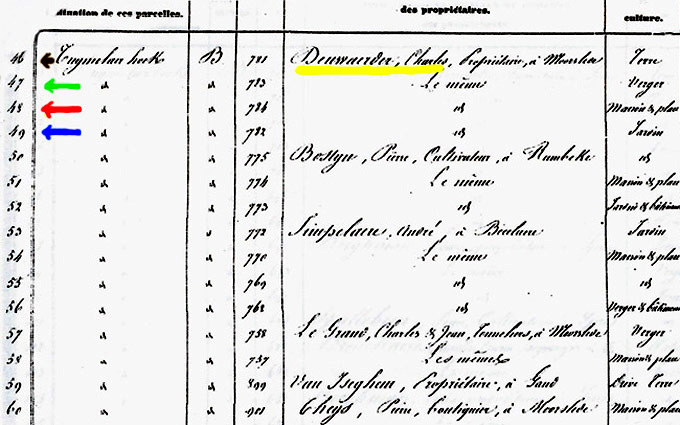 situation de ces parcelles. des propriétaires. culture.
46 Tuymelaer hoek B 781 Deuwaerder, Charles, Propriétaire, à Moorslede Terre
47 " " 783 Le même Verger
48 " " 784 id Maison & plan
49 " " 782 id Jardin
50 " " 775 Bostyn, Pierre, Cultivateur, à Rumbeke id
51 " " 774 Le même Maison & plan
52 " " 773 id Jardin & bâtimen
53 " " 772 Simpelaere, André, à Jardin
54 " " 770 Le même Maison & plan
55 " " 769 id id
56 " " 768 id Verger & bâtimen
57 " " 758 Le Grand, Charles & Jean, Tonneliers, à Moorslede Verger
58 " " 757 Les mêmes Maison & plan
59 " " 899 Van Iseghem, Propriétaire, à Gand Terre
60 " " 901 Cheys, Pierre, boutiquier, à Moorslede Maison & plan